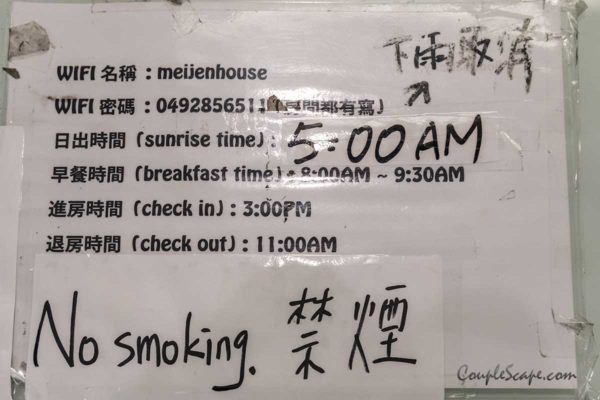 下雨取消
WIFI 名稱：meijenhouse
WIFI 密碼：0492856511（房間都有寫）
日出時間（sunrise time）: 5:00AM
早餐時間（breakfast time）: 8:00AM ~ 9:30AM
進房時間（check in）: 3:00PM
退房時間（check out）: 11:00AM
No smoking. 禁煙
CoupleScape.com